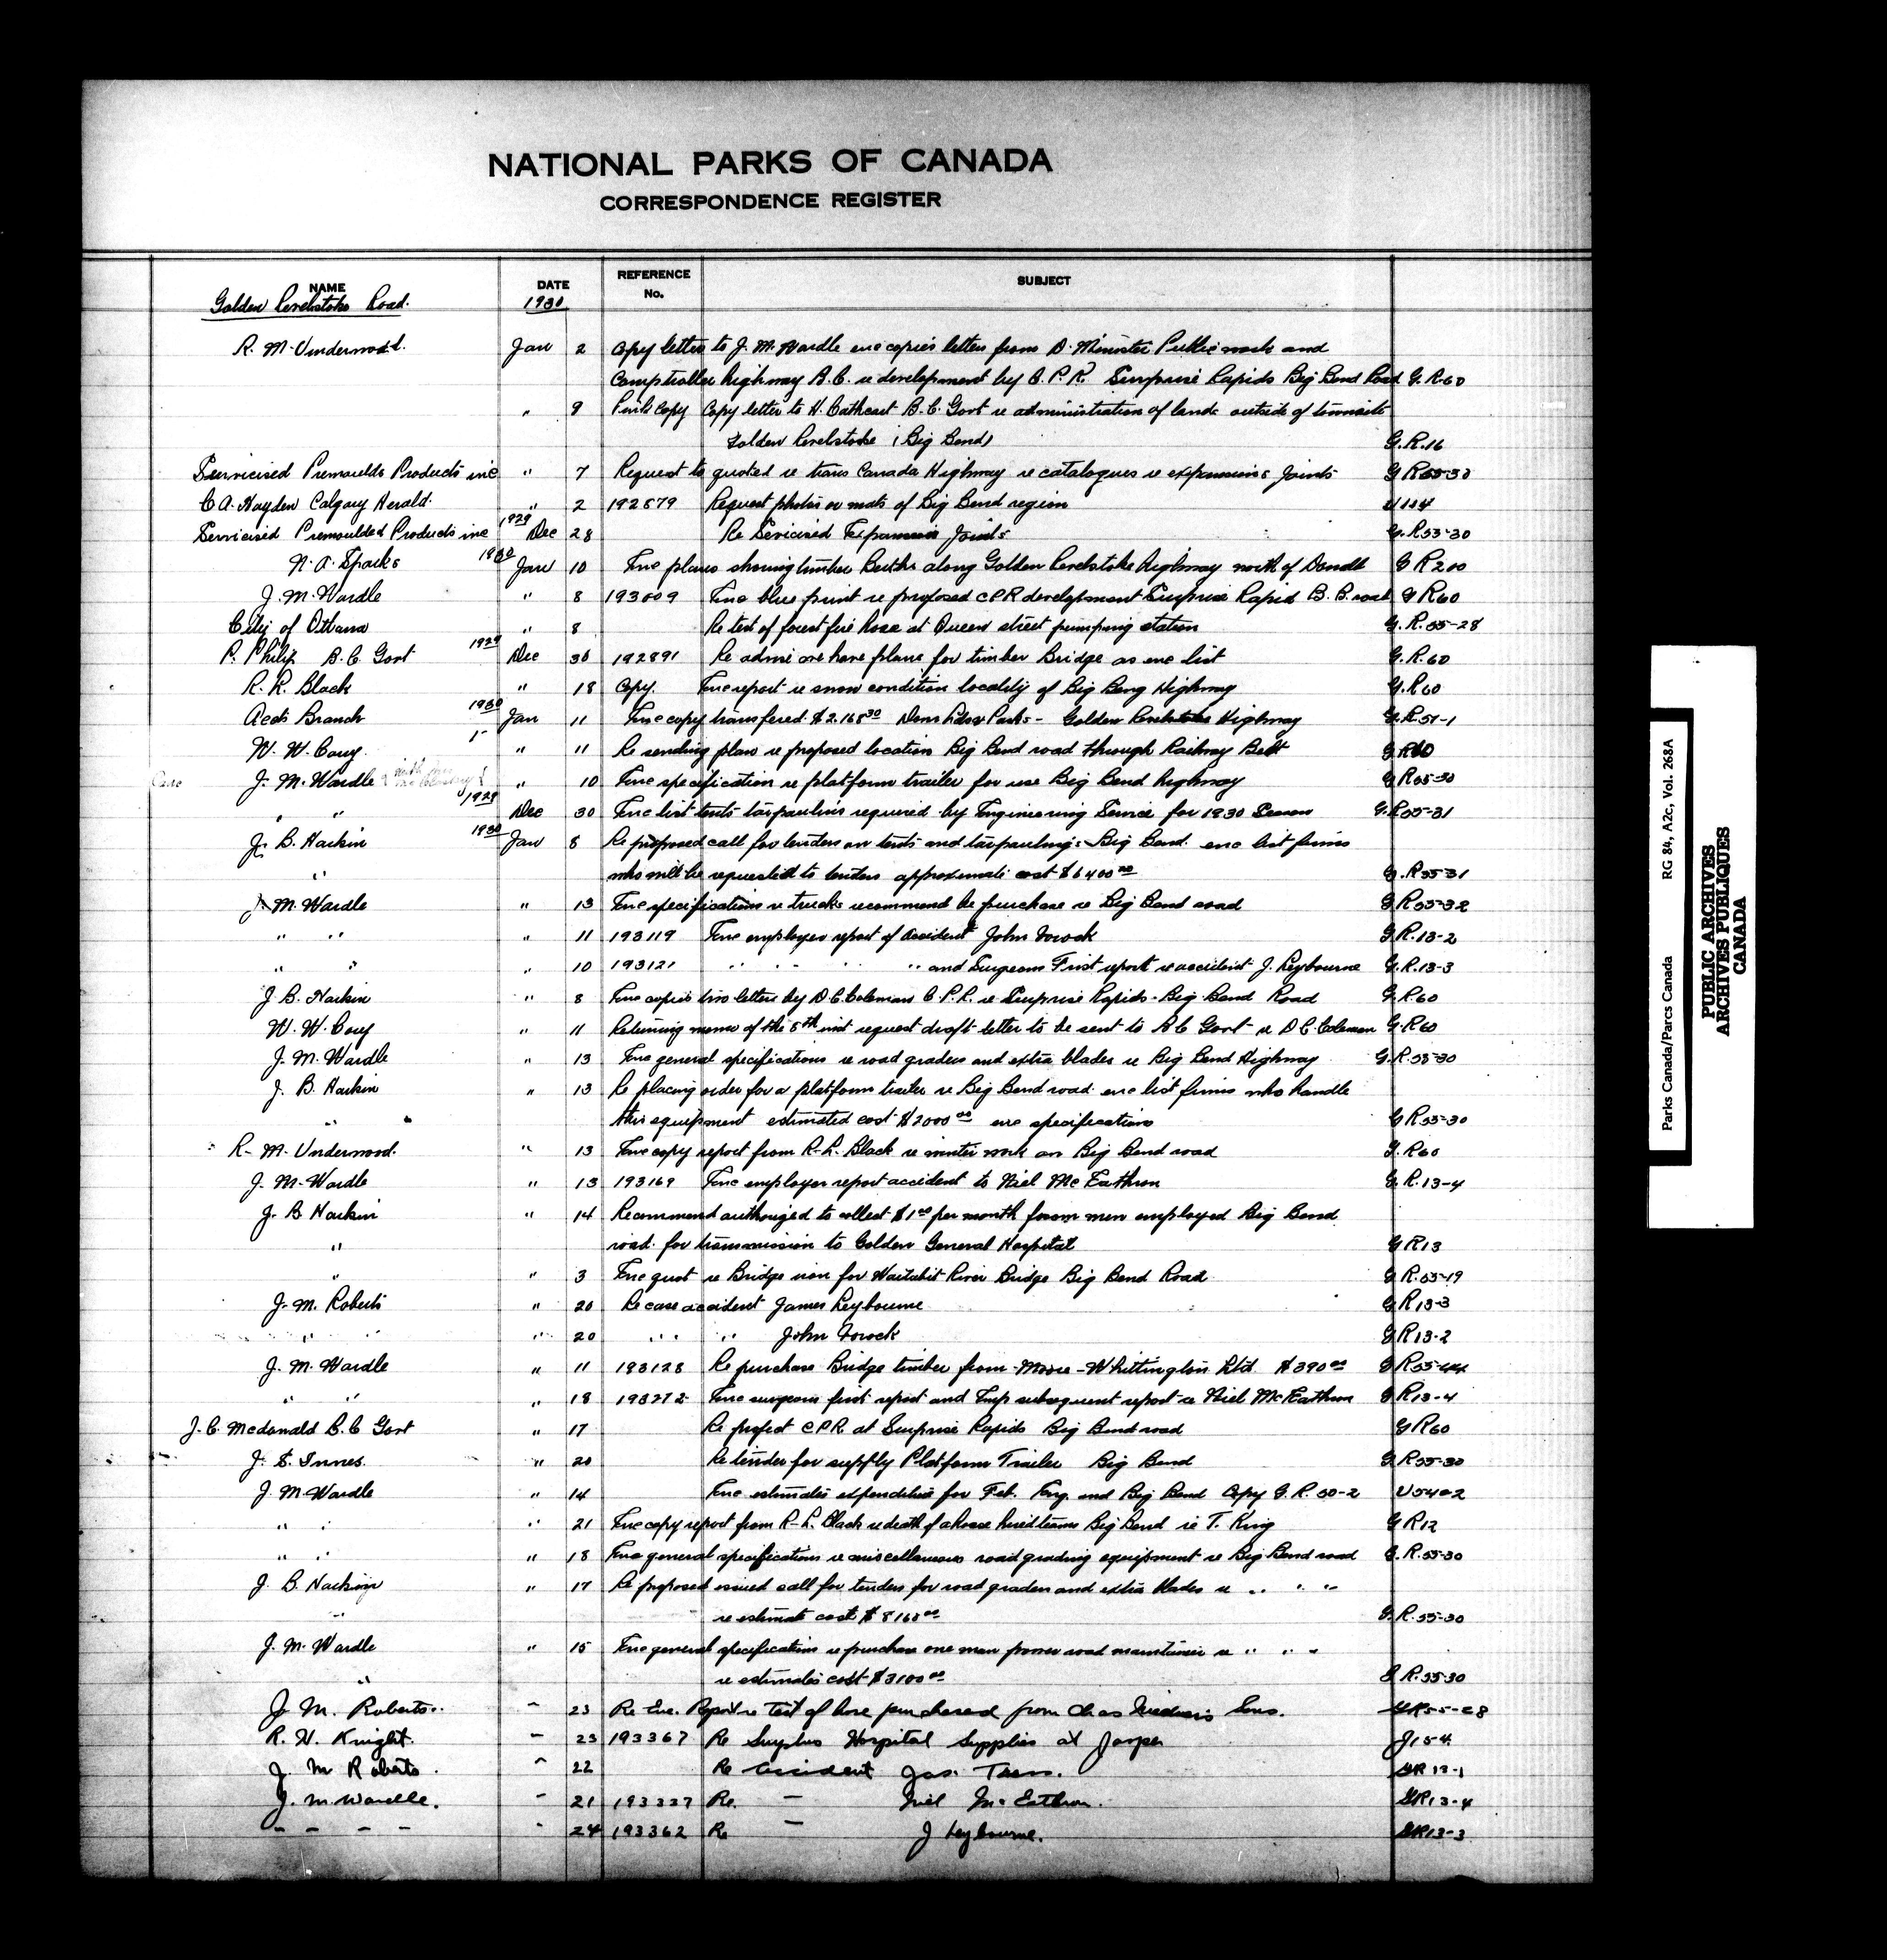 NATIONAL PARKS OF CANADA
CORRESPONDENCE REGISTER
NAME DATE REFERENCE No. SUBJECT
Golden Revelstoke Road. 1930
R. M. Underwood. Jan 2 Copy letter to J. M. Wardle enc copies letters from D. Minister Public work and
Comptroller highway B.C. re development by C.P.R. Surprise Rapids Big Bend Road G.R.60
" 9 Copy Copy letter to H. Cathcart B.C. Govt re administration of lands outside of townsite
Golden Revelstoke (Big Bend) G.R.16
Servicised Premoulds Products inc " 7 Request to quoted re trans Canada Highway re catalogues re expansions Joints G R55-30
C A. Hayden Calgary Herald. " 2 192879 Request photos or mats of Big Bend region U114
Servicised Premoulded Products inc 1929 Dec 28 Re Servicised Expansion Joints G.R55-30
N. A. Sparks 1930 Jan 10 Enc plans showing timber Berths along Golden Revelstoke highway north of Donald G R200
J. M. Wardle " 8 193009 Enc blue print re proposed CPR development Surprise Rapid B. B. road G R60
City of Ottawa " 8 Re test of forest fire hose at Queen street pumping station G.R.55-28
P. Philip B.C. Govt 1929 Dec 30 192891 Re advise are have plans for timber Bridge as enc list G.R.60
R. R. Black " 18 Copy. Enc report re snow condition locality of Big Beng Highway G.R60
Accts Branch 1930 Jan 11 Enc copy transfered $2.168 30 Parks - Golden Revelstoke Highway G.R.51-1
W. W. Cory. " 11 Re sending plan re proposed location Big Bend road through Railway Belt G R60
J. M. Wardle " 10 Enc specification re platform trailer for use Big Bend highway G R55-30
" " 1929 Dec 30 Enc list tents tarpaulins required by Engineering Service for 1930 Season G.R55-31
J. B. Harkin 1930 Jan 8 Re proposed call for tenders on tents and tarpaulings Big Bend. enc list firms
" who will be requested to tenders approximate cost $6400 00 G.R55-31
J. M. Wardle " 13 Enc specifications re trucks recommend be purchase re Big Bend road G R55-32
" " " 11 193119 Enc employer report of accident John G.R.13-2
" " " 10 193121 " " " " " and Surgeons First report re accident J. Leybourne G.R.13-3
J. B. Harkin " 8 Enc copies two letters by D.C. Coleman C.P.R. re Surprise Rapids - Big Bend Road G.R60
W. W. Cory " 11 Returning memo of the 8th inst request draft letter to be sent to B C Govt re D C Coleman G.R60
J. M. Wardle " 13 Enc general specifications re road graders and extra blades re Big Bend Highway G.R.55-30
J. B. Harkin " 13 Re placing order for a platform trailer re Big Bend road. enc list firms who handle
" this equipment estimated cost $2000 00 enc specifications G R55-30
R. M. Underwood. " 13 Enc copy report from R. L. Black re winter work on Big Bend road G.R60
J. M. Wardle " 13 193169 Enc employer report accident to Niel McEathron G.R.13-4
J. B Harkin " 14 Recommend authorized to collect $1 00 per month from men employed Big Bend
" road. for transmission to Golden General Hospital G R13
" " 3 Enc quot re Bridge iron for Waitabit River Bridge Big Bend Road G.R.55-19
J. M. Roberts " 20 Re case accident James Leybourne G R13-3
" " " 20 " " John G R13-2
J. M. Wardle " 11 193128 Re purchase Bridge timber from Moore-Whittington Ltd $390 00 G R55-44
" " " 18 193272 Enc surgeons first report and Emp subsequent report re Niel McEathron G R13-4
J. C. Mcdonald B.C Govt " 17 Re project CPR at Surprise Rapids Big Bend road G R60
J. S. Innes. " 20 Re tender for supply Platform Trailer Big Bend G R55-30
J. M. Wardle " 14 Enc estimates expenditure for Feb. Eng. and Big Bend Copy G.R. 50-2 U540-2
" " " 21 Enc copy report from R. L. Black re death of a horse hired teams Big Bend re T. King G R12
" " " 18 Enc general specifications re miscellaneous road grading equipment re Big Bend road G.R.55-30
J. B. Harkin " 17 Re proposed issued call for tenders for road graders and extra blades re " " "
" re estimate cost $8168 00 G.R.55-30
J. M. Wardle " 15 Enc general specifications re purchase one man power road maintainer re " " "
" re estimates cost $3100 00 G R.55-30
J. M. Roberts. " 23 Re Enc. Report re Test of hose purchased from Chas Sons. GR55-28
R. H. Knight. " 23 193367 Re Surplus Hospital Supplies at Jasper J154
J. M Roberts. " 22 Re accident Jas. GR 13-1
J. M. Wardle. " 21 193337 Re. " Niel McEathron. GR13-4
" " " " " 24 193362 Re " J Leybourne. GR13-3
Parks Canada/Parcs Canada RG 84, A2c, Vol. 268A
PUBLIC ARCHIVES
ARCHIVES PUBLIQUES
CANADA